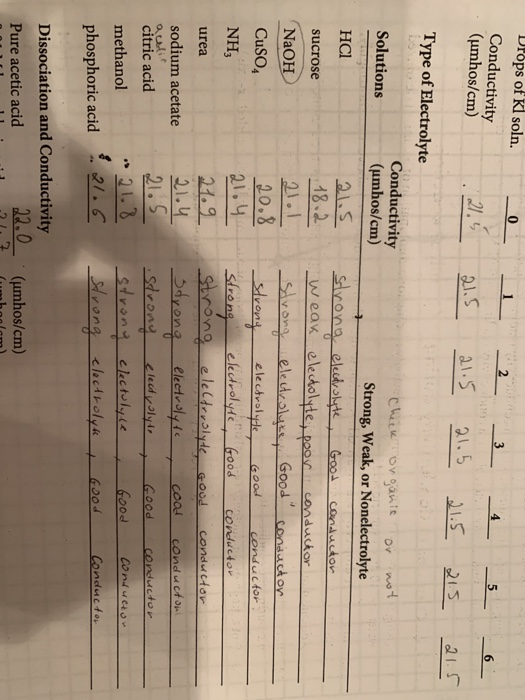 Drops of KI soln. 0 1 2 3 4 5 6
Conductivity 21.5 21.5 21.5 21.5 21.5 21.5 21.5
(µmhos/cm)
Type of Electrolyte
check organic or not
Solutions Conductivity (µmhos/cm) Strong, Weak, or Nonelectrolyte
HCl 21.5 strong electrolyte, Good conductor
sucrose 18.2 weak electrolyte, poor conductor
NaOH 21.1 strong electrolyte, Good conductor
CuSO4 20.8 strong electrolyte, Good conductor
NH3 21.4 strong electrolyte, Good conductor
urea 21.9 strong electrolyte Good conductor
sodium acetate 21.4 strong electrolyte, Good conductor
acetic
citric acid 21.5 strong electrolyte, Good conductor
methanol 21.8 strong electrolyte, Good conductor
phosphoric acid 21.6 strong electrolyte, Good conductor
Dissociation and Conductivity
Pure acetic acid 22.0 (µmhos/cm)
(µmhos/cm)